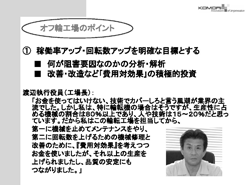 KOMORI
オフ輪工場のポイント
① 稼働率アップ・回転数アップを明確な目標とする
■ 何が阻害要因なのかの分析・解析
■ 改善・改造など「費用対効果」の積極的投資
渡辺執行役員(工場長):
「お金を使ってはいけない。技術でカバーしろと言う風潮が業界の主
流でした。しかし私は、特に輪転機の場合はそうですが、生産性に占
める機械の割合は80%以上であり、人や技術は15～20%だと思っ
ています。だから私はこの輪転工場を担当してから、
第一に機械を止めてメンテナンスをやり、
第二に回転数を上げるための機械修理と
改善のために、『費用対効果』を考えつつ
お金を使いましたが、それ以上の生産を
上げられましたし、品質の安定にも
つながりました。」